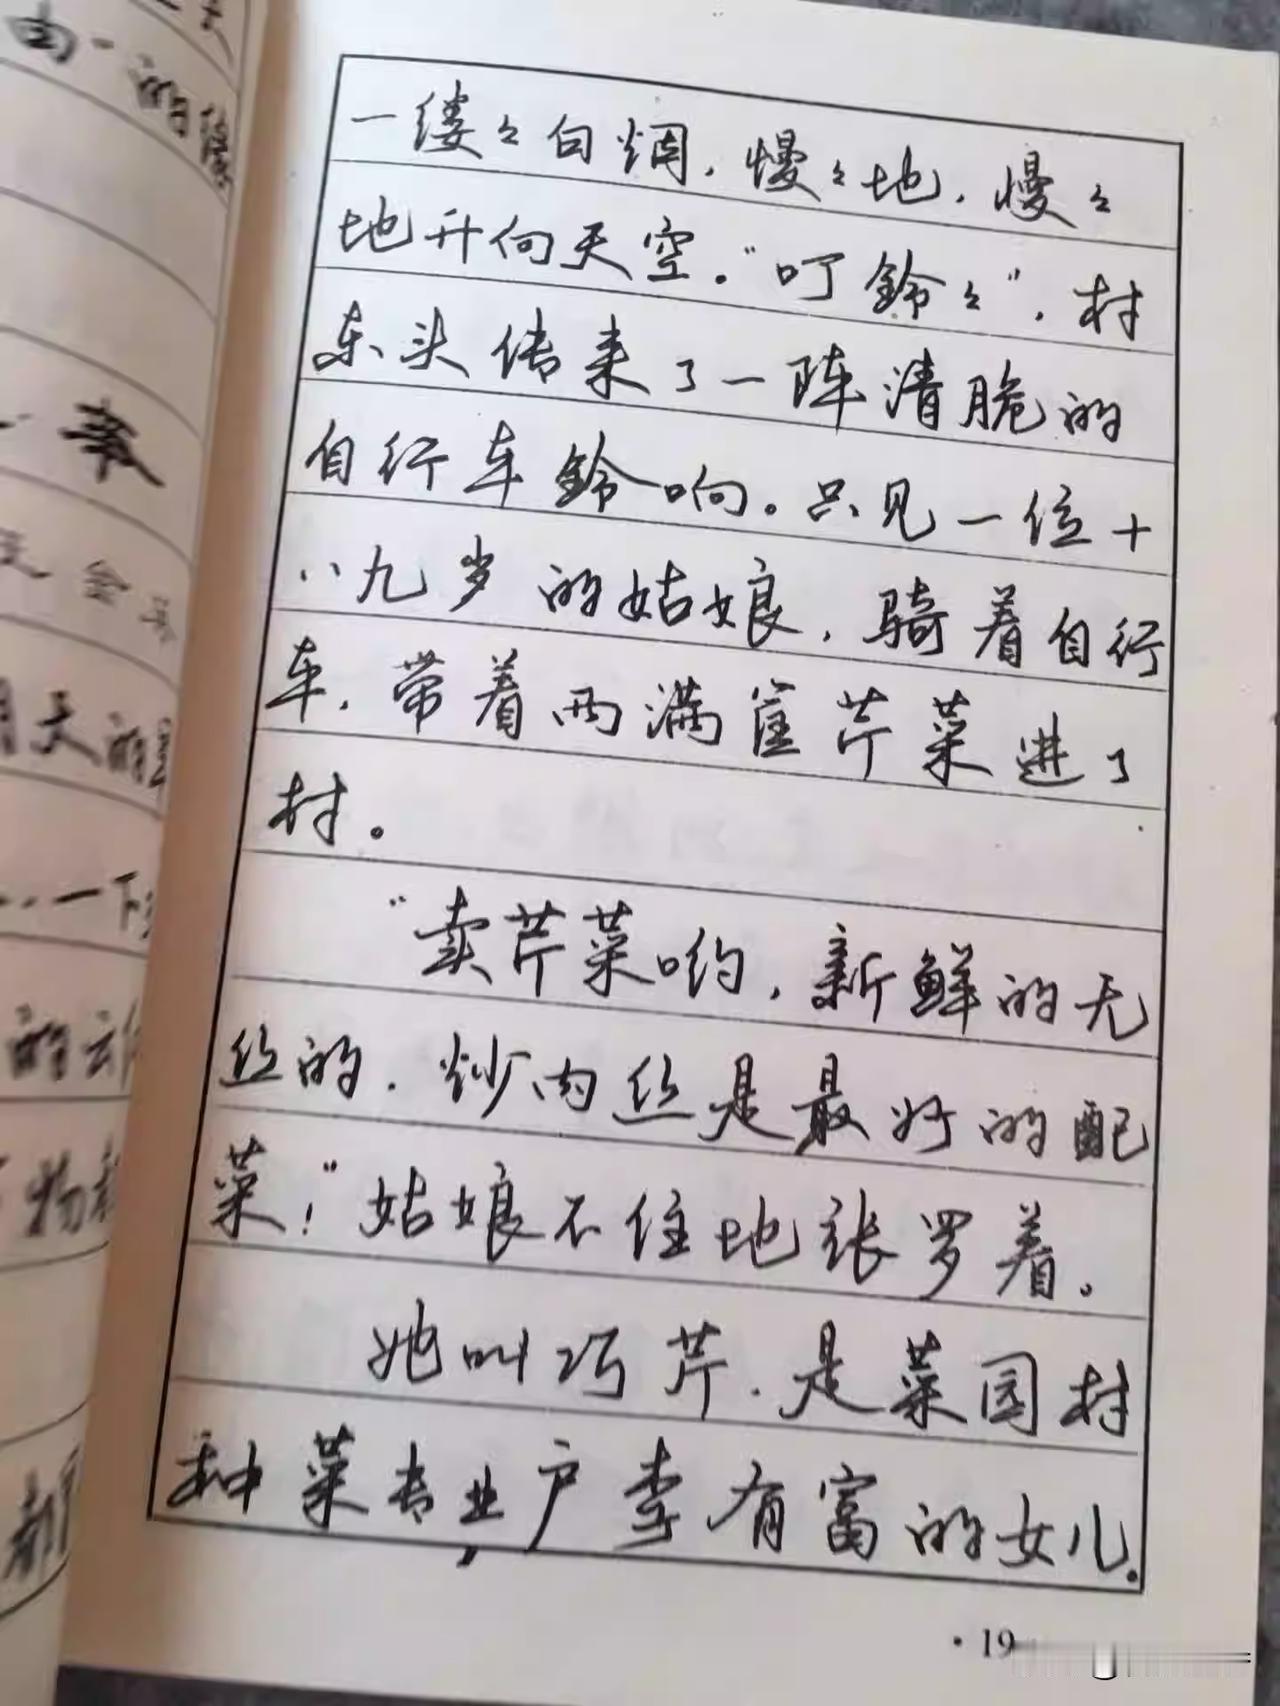 一缕々白烟，慢々地，慢々
地升向天空。“叮鈴々”，村
东头传来了一阵清脆的
自行车鈴响。只见一位十
八九岁的姑娘，骑着自行
车，带着两满筐芹菜进了
村。
“卖芹菜哟，新鲜的无
丝的，炒肉丝是最好的配
菜！”姑娘不住地张罗着。
她叫巧芹，是菜园村
种菜专业户李有富的女儿。
·19